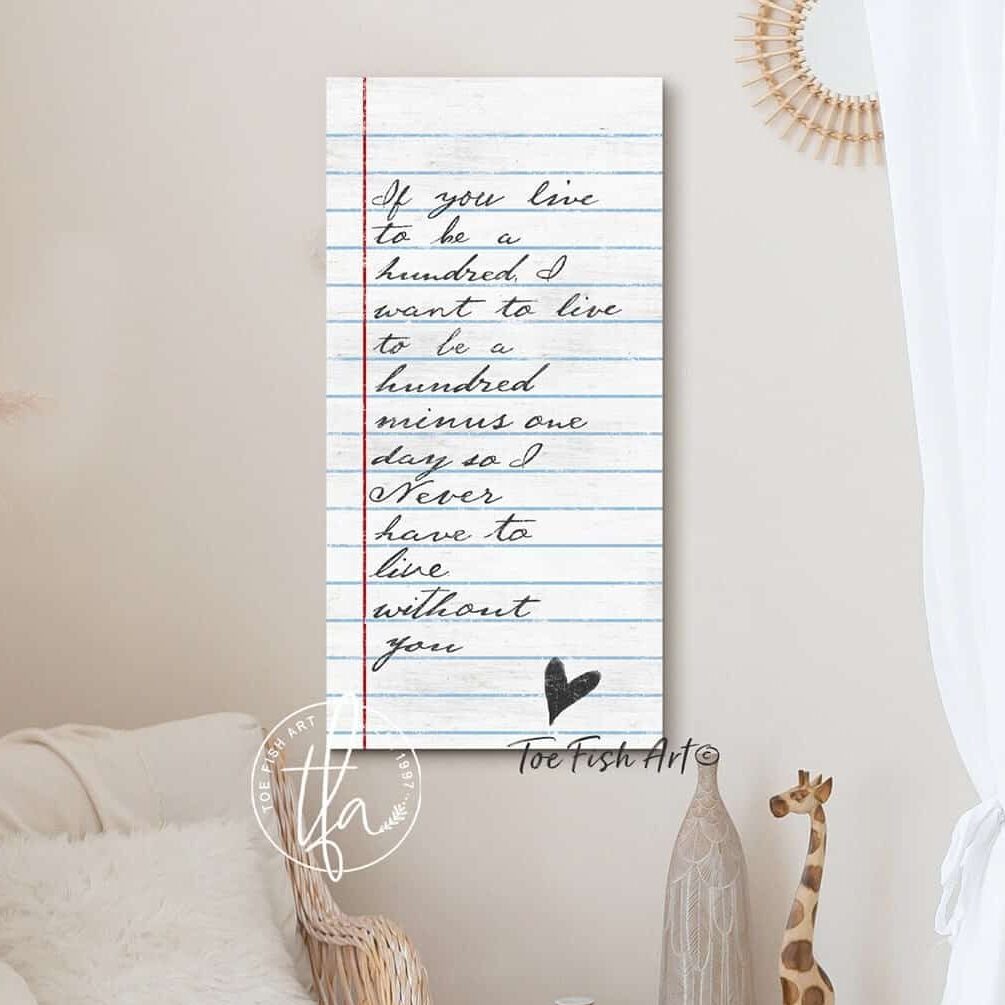 If you live
to be a
hundred, I
want to live
to be a
hundred
minus one
day so I
Never
have to
live
without
you
Toe Fish Art©
TOE FISH ART
tfa
1997...